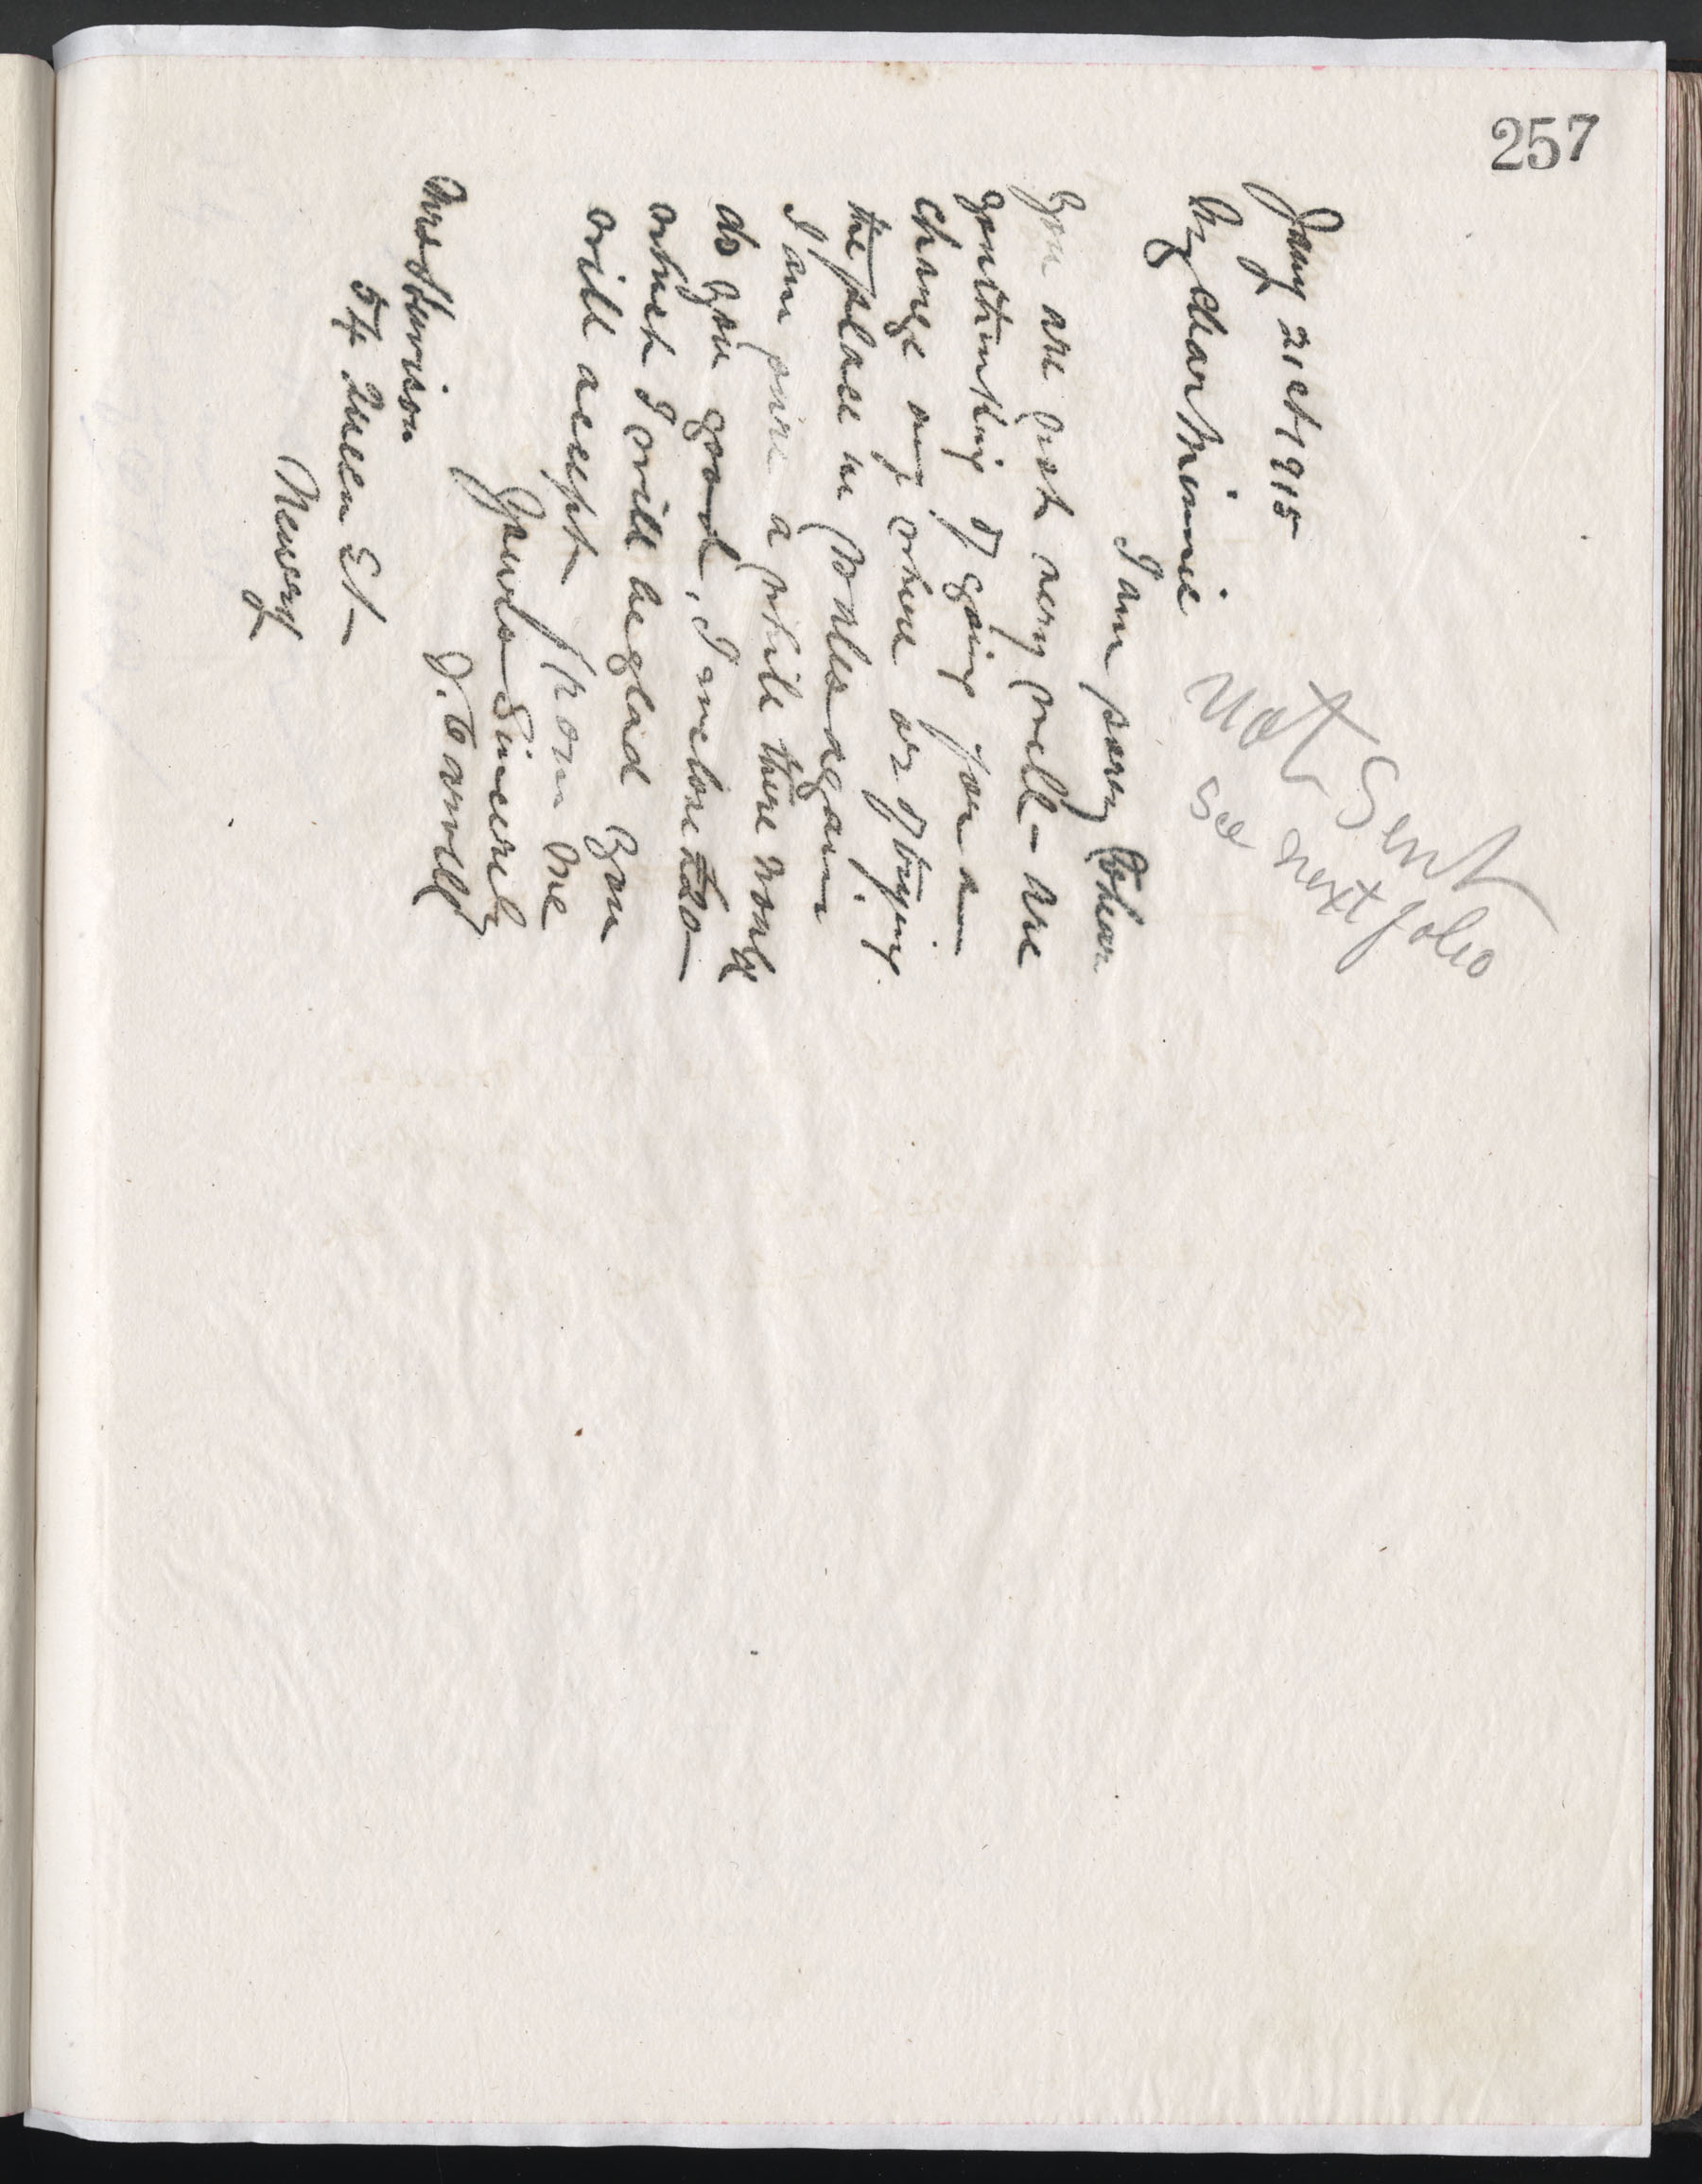 257
Jany 21st 1915
My dear Minnie
Not Sent
see next folio
I am sorry to hear
you are not very well - are
you thinking of going for a
change any where or of trying
the place in Wales again
I am sure a while there would
do you good, I enclose £20
which I will be glad you
will accept from me
Yours Sincerely
Mrs Harrison
54 Queen St
Newry